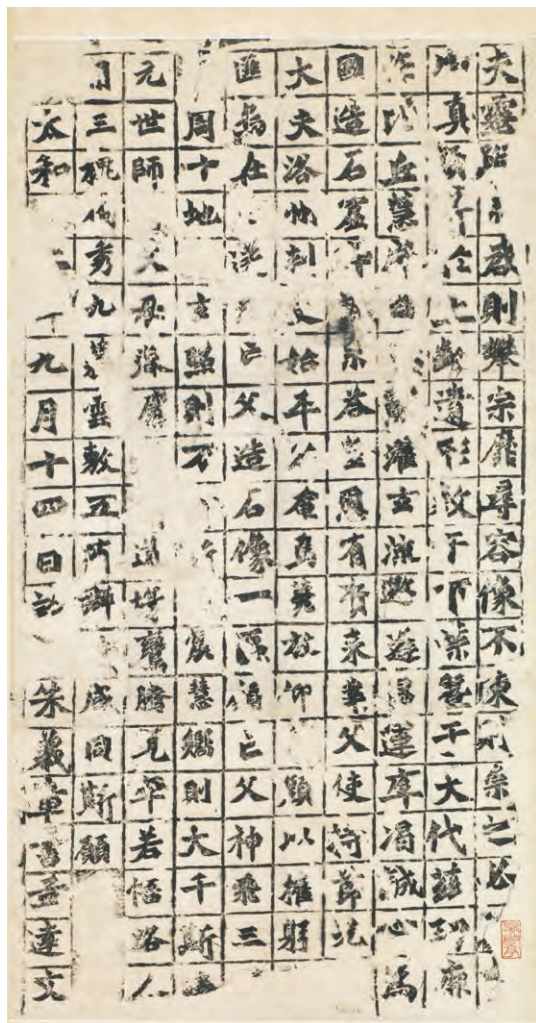 夫靈蹤啟則攀宗靡尋容像不陳則崇之必
真顏於上齡遺形敷于下葉暨于大代茲功厥
作比丘慧成濯玄流邀逢昌運率竭誠心為
國造石窟答皇恩有資來業父使持節光
大夫洛州刺史始平公奄焉薨放仰顏以摧躬
匪烏在遂亡父造石像一區願亡父神飛三
周十地玄照則万震慧嚮則大千斯
元世師父母眷屬道場鸞騰兜率若悟洛人
間三槐獨秀九棘雲敷五有群咸同斯願
太和九月十四日訖朱義章書孟達文